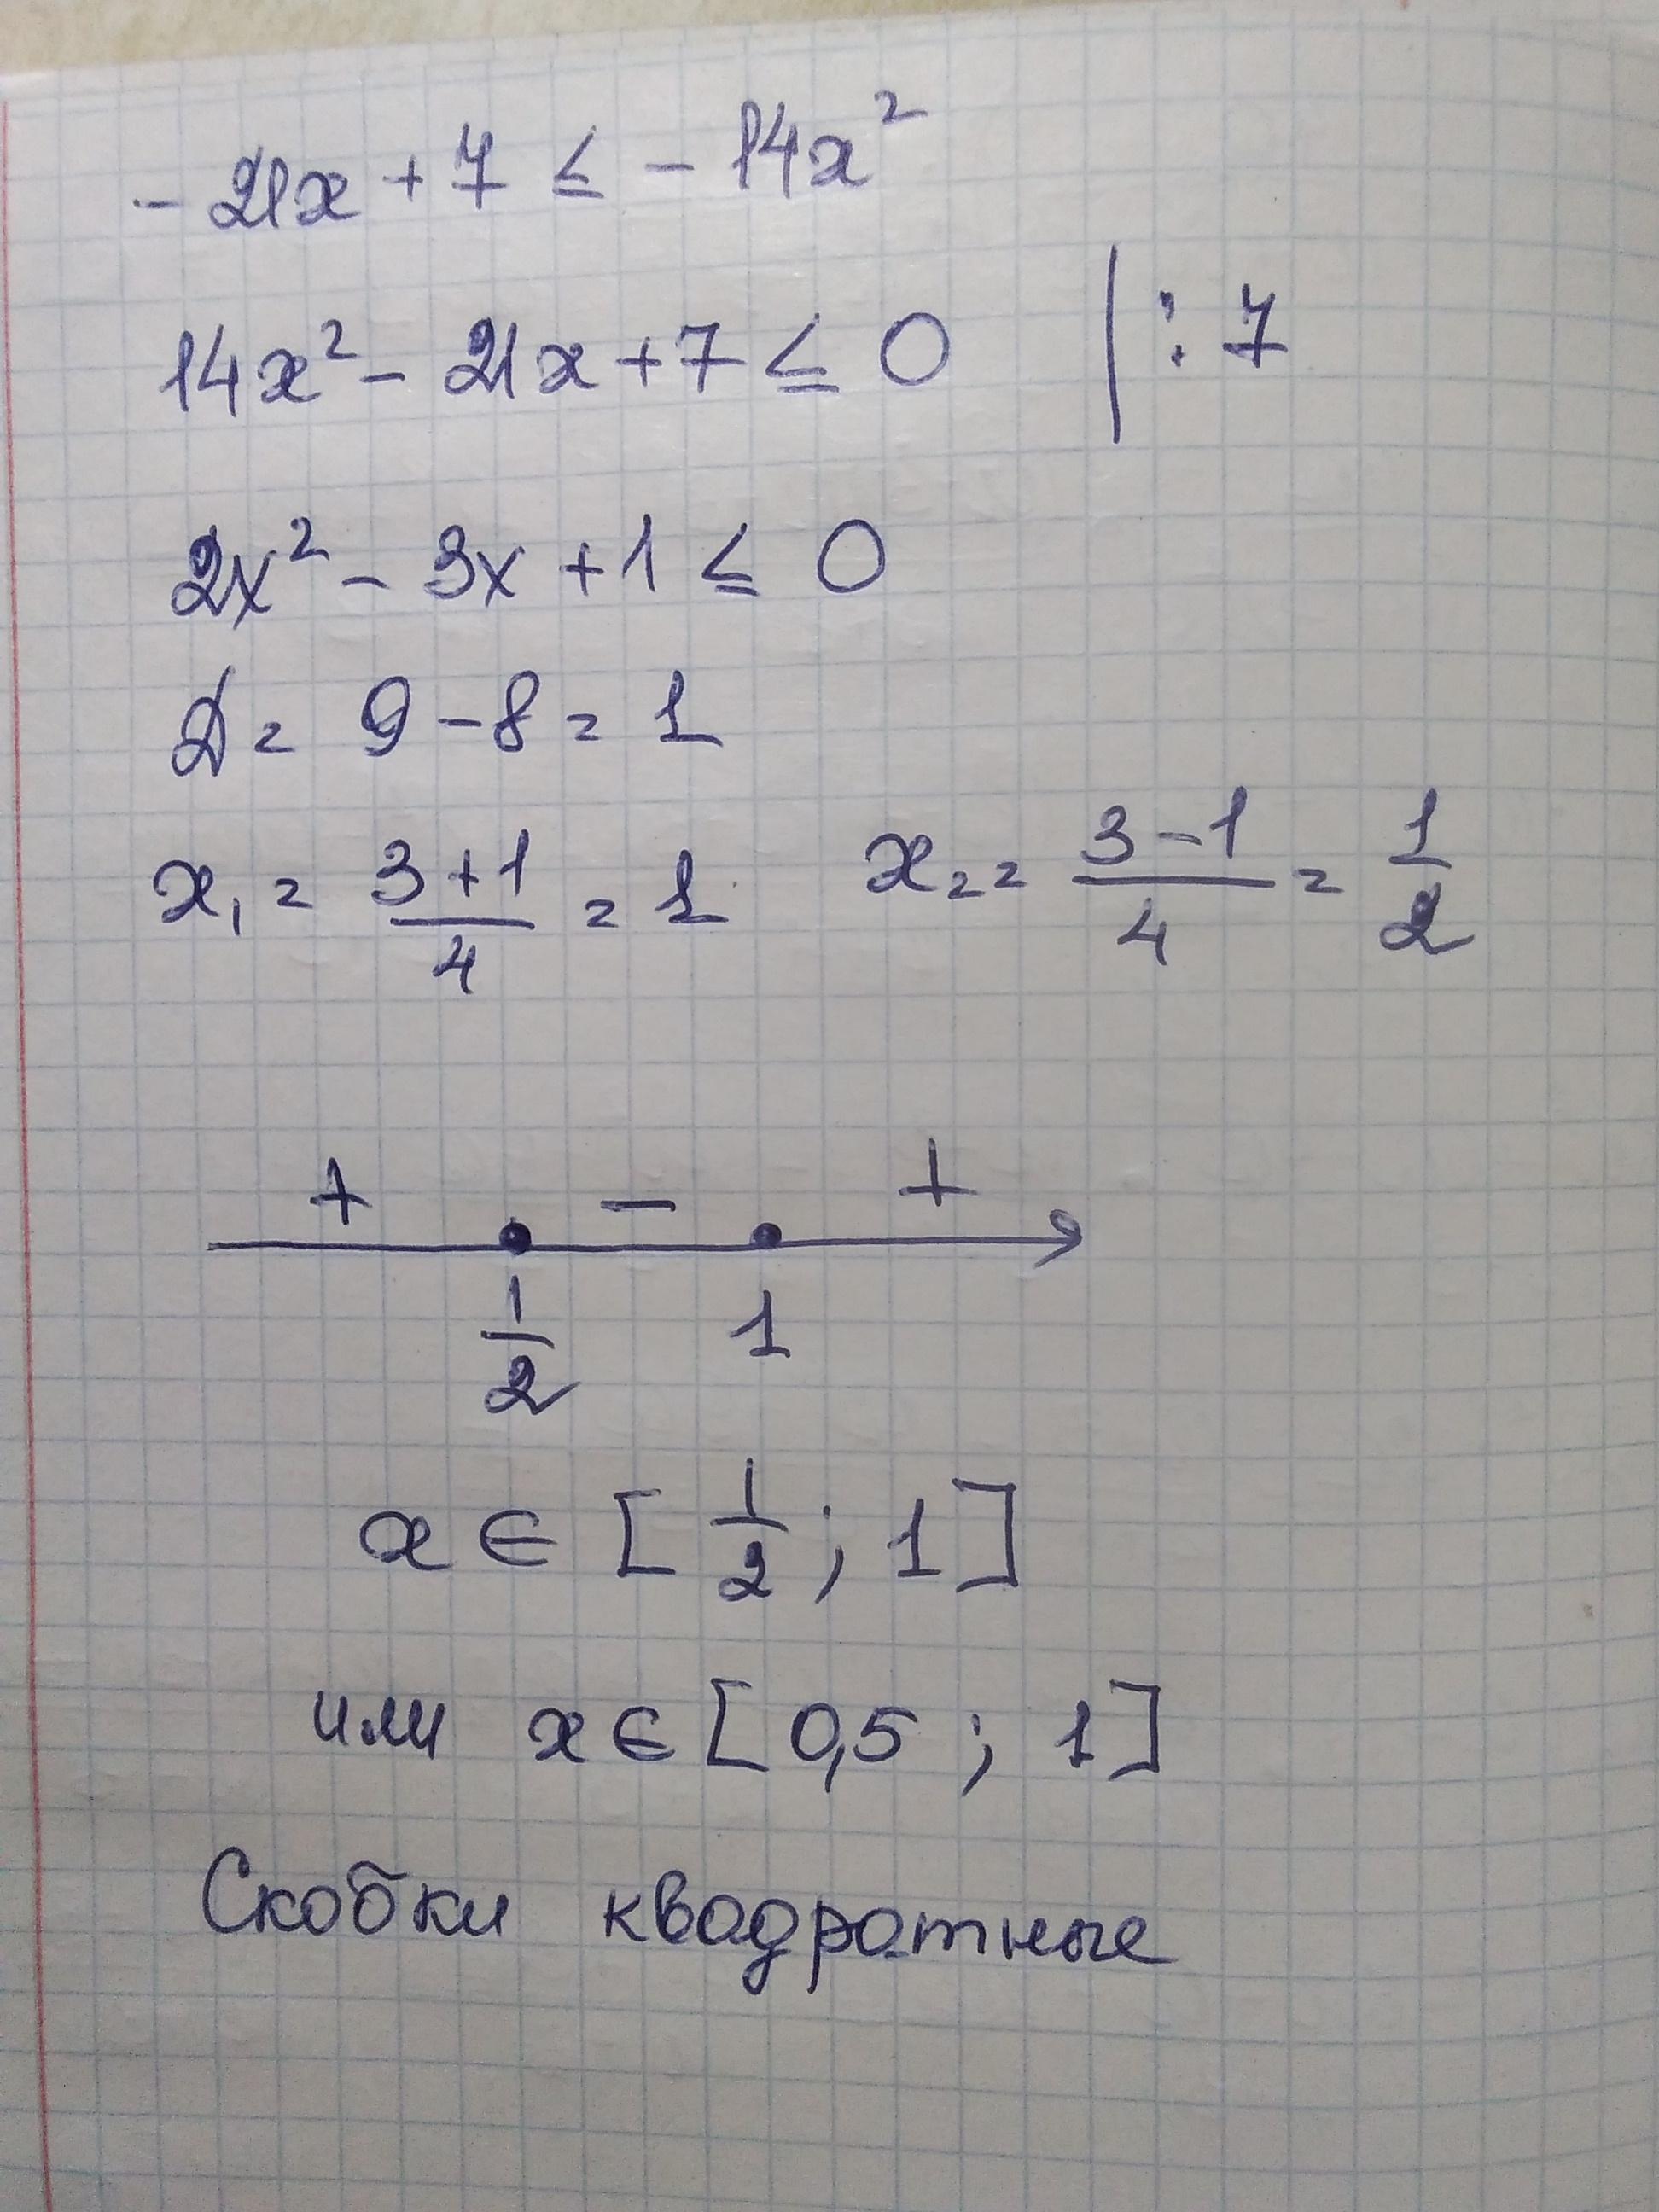 -21x + 7 ≤ -14x²
14x² - 21x + 7 ≤ 0 | : 7
2x² - 3x + 1 ≤ 0
D = 9 - 8 = 1
x₁ = (3+1)/4 = 1 x₂ = (3-1)/4 = 1/2
+ - +
1/2 1
x ∈ [1/2; 1]
или x ∈ [0,5; 1]
Скобки квадратные